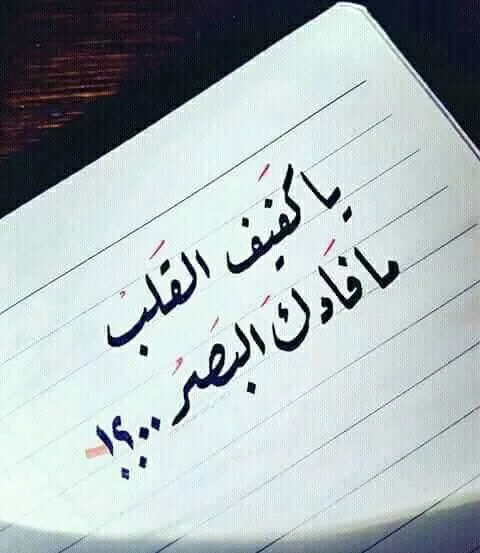 يا كفيَف القَلبْ
ما فاَدكَ البَصَرُ ..؟!